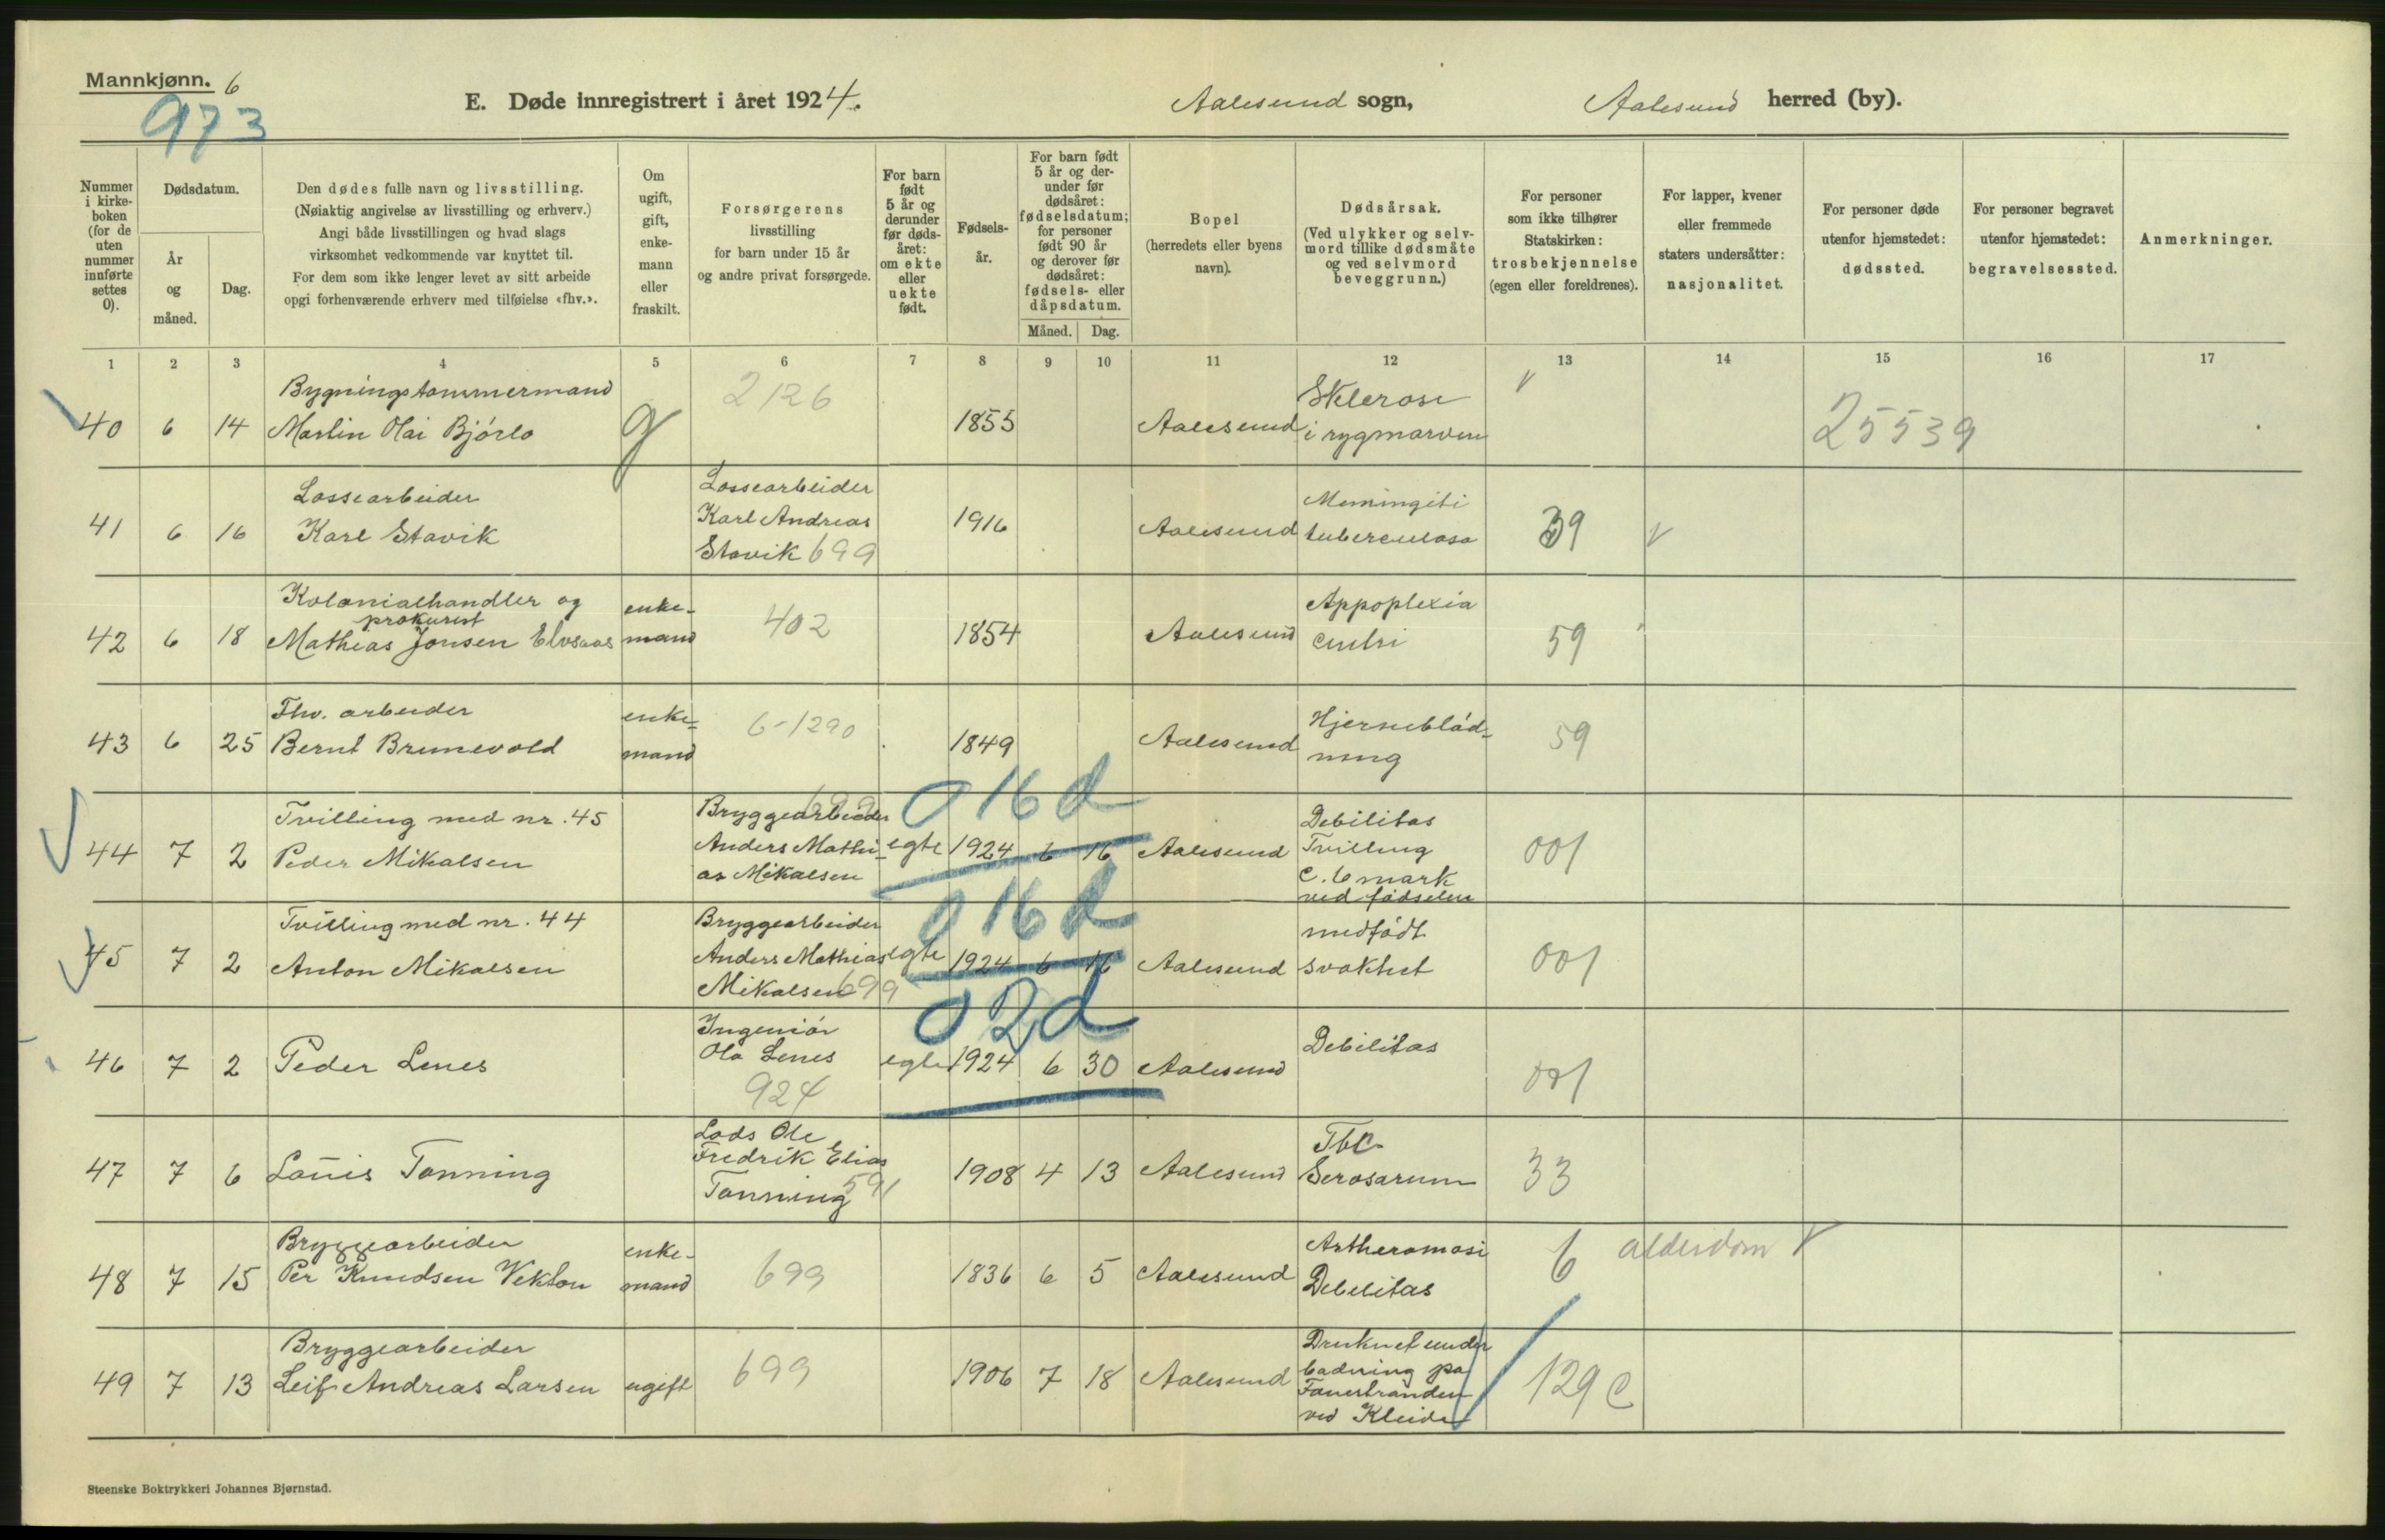 Mannkjønn. 6
973
E. Døde innregistrert i året 1924.
Aalesund sogn,
Aalesund herred (by).
Nummer i kirke-boken (for de uten nummer innførte settes 0).
Dødsdatum.
År og måned.
Dag.
Den dødes fulle navn og livsstilling.
(Nøiaktig angivelse av livsstilling og erhverv.)
Angi både livsstillingen og hvad slags
virksomhet vedkommende var knyttet til.
For dem som ikke lenger levet av sitt arbeide
opgi forhenværende erhverv med tilføielse «fhv.».
Om ugift, gift, enke-mann eller fraskilt.
Forsørgerens
livsstilling
for barn under 15 år
og andre privat forsørgede.
For barn født 5 år og derunder før døds-året: om ekte eller uekte født.
Fødsels-år.
For barn født 5 år og der-under før dødsåret: fødselsdatum; for personer født 90 år og derover før dødsåret: fødsels- eller dåpsdatum.
Måned. Dag.
Bopel
(herredets eller byens
navn).
Dødsårsak.
(Ved ulykker og selv-
mord tillike dødsmåte
og ved selvmord
beveggrunn.)
For personer
som ikke tilhører
Statskirken:
trosbekjennelse
(egen eller foreldrenes).
For lapper, kvener
eller fremmede
staters undersåtter:
nasjonalitet.
For personer døde
utenfor hjemstedet:
dødssted.
For personer begravet
utenfor hjemstedet:
begravelsessted.
Anmerkninger.
1 2 3 4 5 6 7 8 9 10 11 12 13 14 15 16 17
Bygningstømmermand
40 6 14 Martin Olai Bjørlo g 2126 1855 Aalesund Sklerose
i rygmarven 25539
Lossearbeider
41 6 16 Karl Stavik
Lossearbeider
Karl Andreas
Stavik 699
1916 Aalesund
Meningiti
tuberculosa
39
Kolonialhandler og
prokurist
42 6 18 Mathias Jonsen Elvsaas
enke-
mand
402 1854 Aalesund
Appoplexia
cerebri
59
Fhv. arbeider
43 6 25 Bernt Brunevold
enke-
mand
6-1290 1849 Aalesund
Hjerneblød-
ning
59
Tvilling med nr. 45
44 7 2 Peder Mikalsen
Bryggearbeider 699
Anders Mathi-
as Mikalsen
egte 1924 6 16 Aalesund
0 16 d
Debilitas
Tvilling
c. 6 mark
ved fødselen
001
Tvilling med nr. 44
45 7 2 Anton Mikalsen
Bryggearbeider
Anders Mathias
Mikalsen 699
egte 1924 6 16 Aalesund
0 16 d
medfødt
svakhet
001
46 7 2 Peder Lenes
Ingeniør
Ola Lenes
924
egte 1924 6 30 Aalesund
0 2 d
Debilitas
001
47 7 6 Louis Tønning
Lods Ole
Fredrik Elias
Tønning 591
1908 4 13 Aalesund
Tbc
Serosarum
33
Bryggearbeider
48 7 15 Per Knudsen Vekton
enke-
mand
699 1836 6 5 Aalesund
Artheromasi
Debilitas
6 alderdom
Bryggearbeider
49 7 13 Leif Andreas Larsen ugift 699 1906 7 18 Aalesund
Druknet under
badning på
ved
129 c
Steenske Boktrykkeri Johannes Bjørnstad.